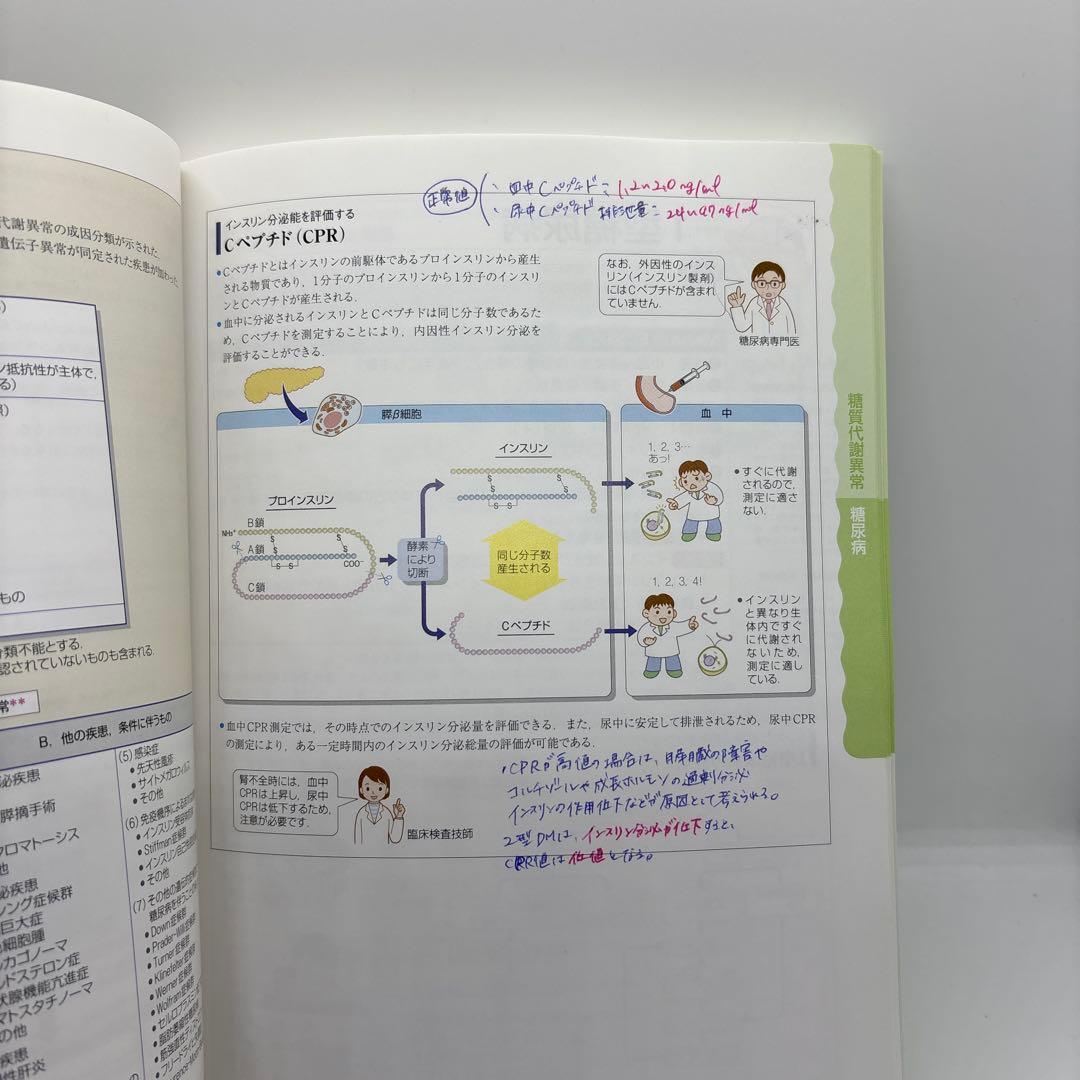 代謝異常の成因分類が示された.
遺伝子異常が同定された疾患が加わった
抵抗性が主体で,
る)
もの
分類不能とする.
認されていないものも含まれる.
常**
B. 他の疾患, 条件に伴うもの
泌疾患
膵摘手術
クロマトーシス
他
泌疾患
シング症候群
巨大症
細胞腫
ルカゴノーマ
ルドステロン症
状腺機能亢進症
マトスタチノーマ
の他
疾患
性肝炎
(5) 感染症
• 先天性風疹
• サイトメガロウイルス
• その他
(6) 免疫機序による
• インスリン受容体
• Stiffman症候群
• インスリン自己免疫
• その他
(7) その他の遺伝的
糖尿病を伴うことの
• Down症候群
• Prader-Willi症候群
• Turner症候群
• Klinefelter症候群
• Werner症候群
• Wolfram症候群
• セルロプラスミン
• 脂肪萎縮性糖尿病
• 筋強直性
• フリードライヒ
正常値
・血中Cペプチド: 1.2~2.0 ng/ml
・尿中Cペプチド排泄量: 24~97 ng/ml
インスリン分泌能を評価する
Cペプチド(CPR)
• Cペプチドとはインスリンの前駆体であるプロインスリンから産生
される物質であり, 1分子のプロインスリンから1分子のインスリ
ンとCペプチドが産生される.
• 血中に分泌されるインスリンとCペプチドは同じ分子数であるた
め, Cペプチドを測定することにより, 内因性インスリン分泌を
評価することができる.
なお, 外因性のインス
リン(インスリン製剤)
にはCペプチドが含まれ
ていません.
糖尿病専門医
膵β細胞
血中
プロインスリン
B鎖
NH₃⁺
A鎖
S
S
S
S
S S
COO⁻
C鎖
酵素
により
切断
インスリン
S
S
S
S
S S
同じ分子数
産生される
Cペプチド
1, 2, 3…
あっ!
• すぐに代謝
されるので,
測定に適さ
ない.
1, 2, 3, 4!
• インスリン
と異なり生
体内ですぐ
に代謝され
ないため,
測定に適し
ている.
• 血中CPR測定では, その時点でのインスリン分泌量を評価できる. また, 尿中に安定して排泄されるため, 尿中CPR
の測定により, ある一定時間内のインスリン分泌総量の評価が可能である.
腎不全時には, 血中
CPRは上昇し, 尿中
CPRは低下するため,
注意が必要です.
臨床検査技師
・CPRが高値の場合は、膵臓の障害や
コルチゾールや成長ホルモンの過剰分泌
インスリンの作用低下などが原因として考えられる。
2型DMは、インスリン分泌が低下すると、
CPR値は低値となる。
糖質代謝異常
糖尿病